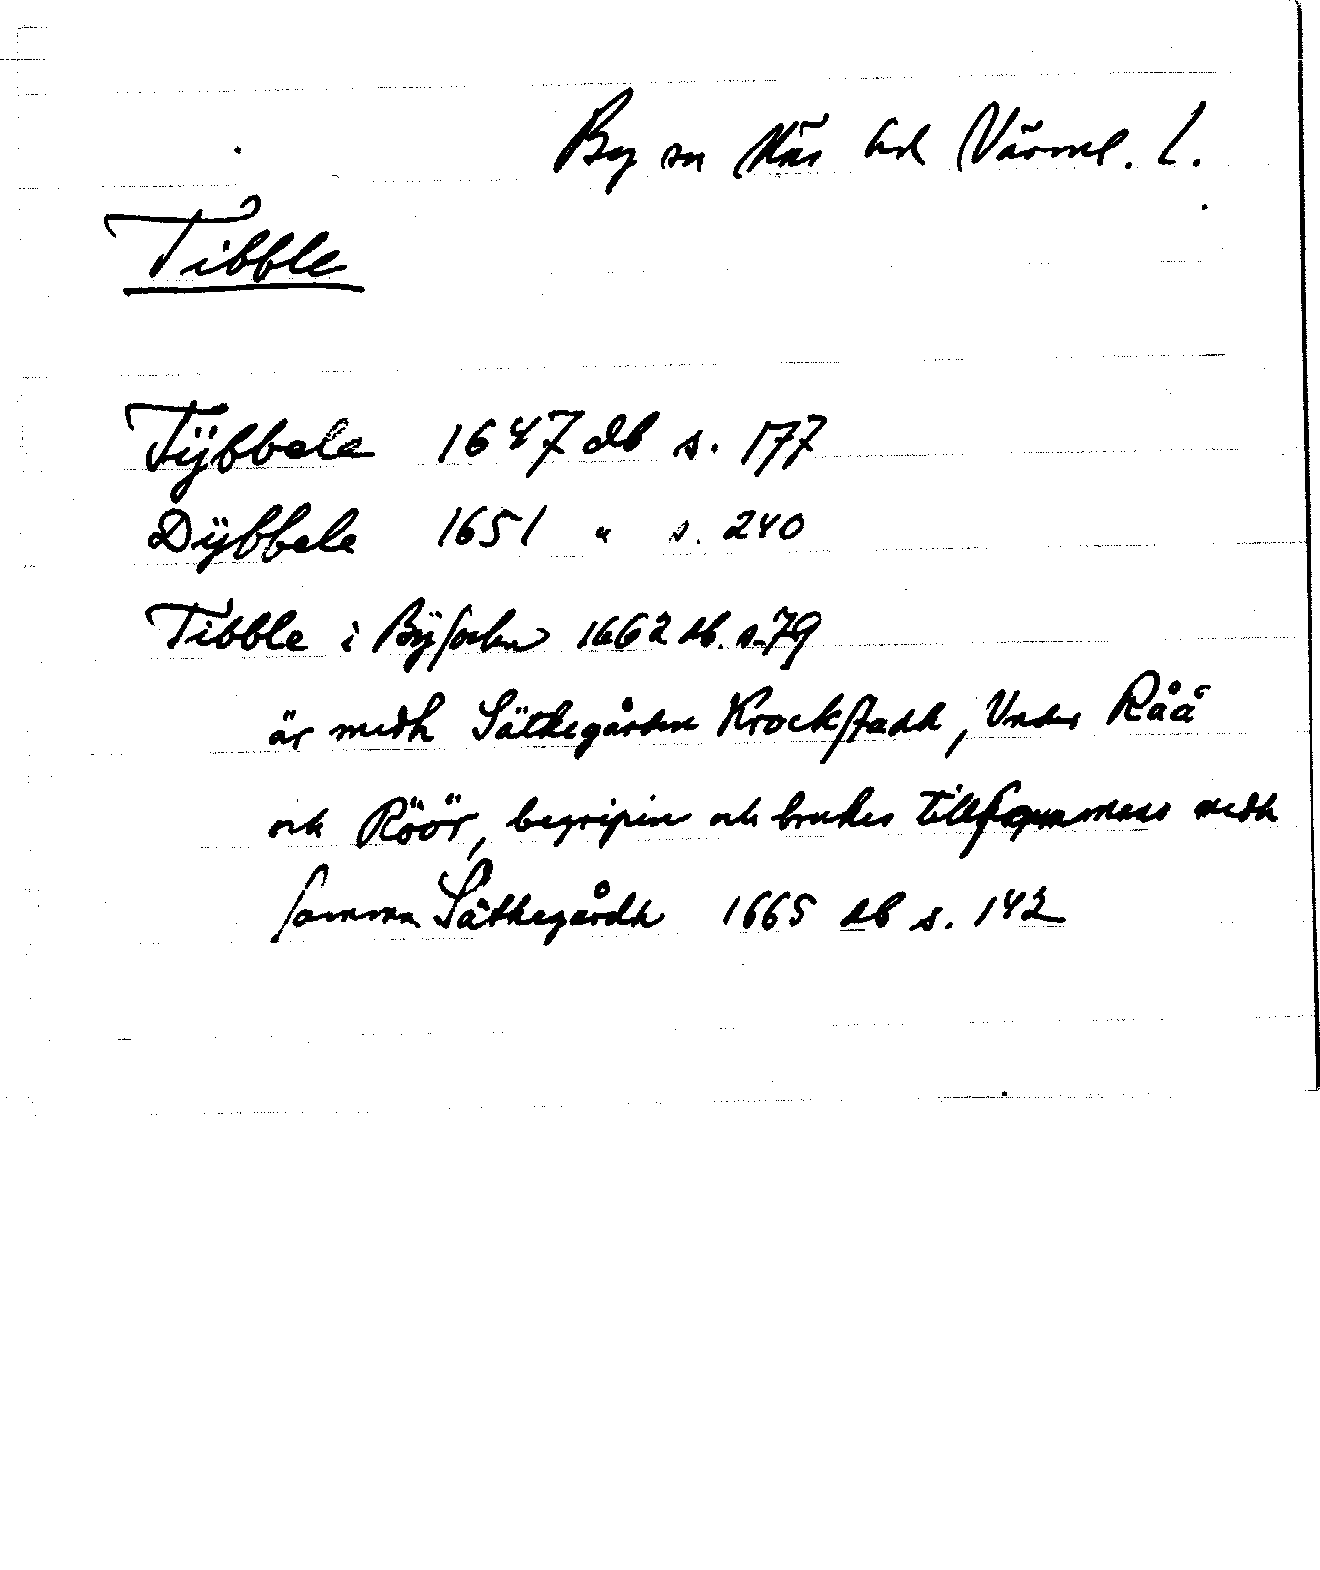 By sn Näs hd Värml. l.
Tibble
Tÿbbele 1647 db s. 177
Dÿbbele 1651 " s. 240
Tibble i Bÿsochn 1662 db. s. 79
är medh Säthegården Krockstadh, Under Råå
och Röör, begripin och brukes tillsammans medh
samma Säthegårdh 1665 db s. 142